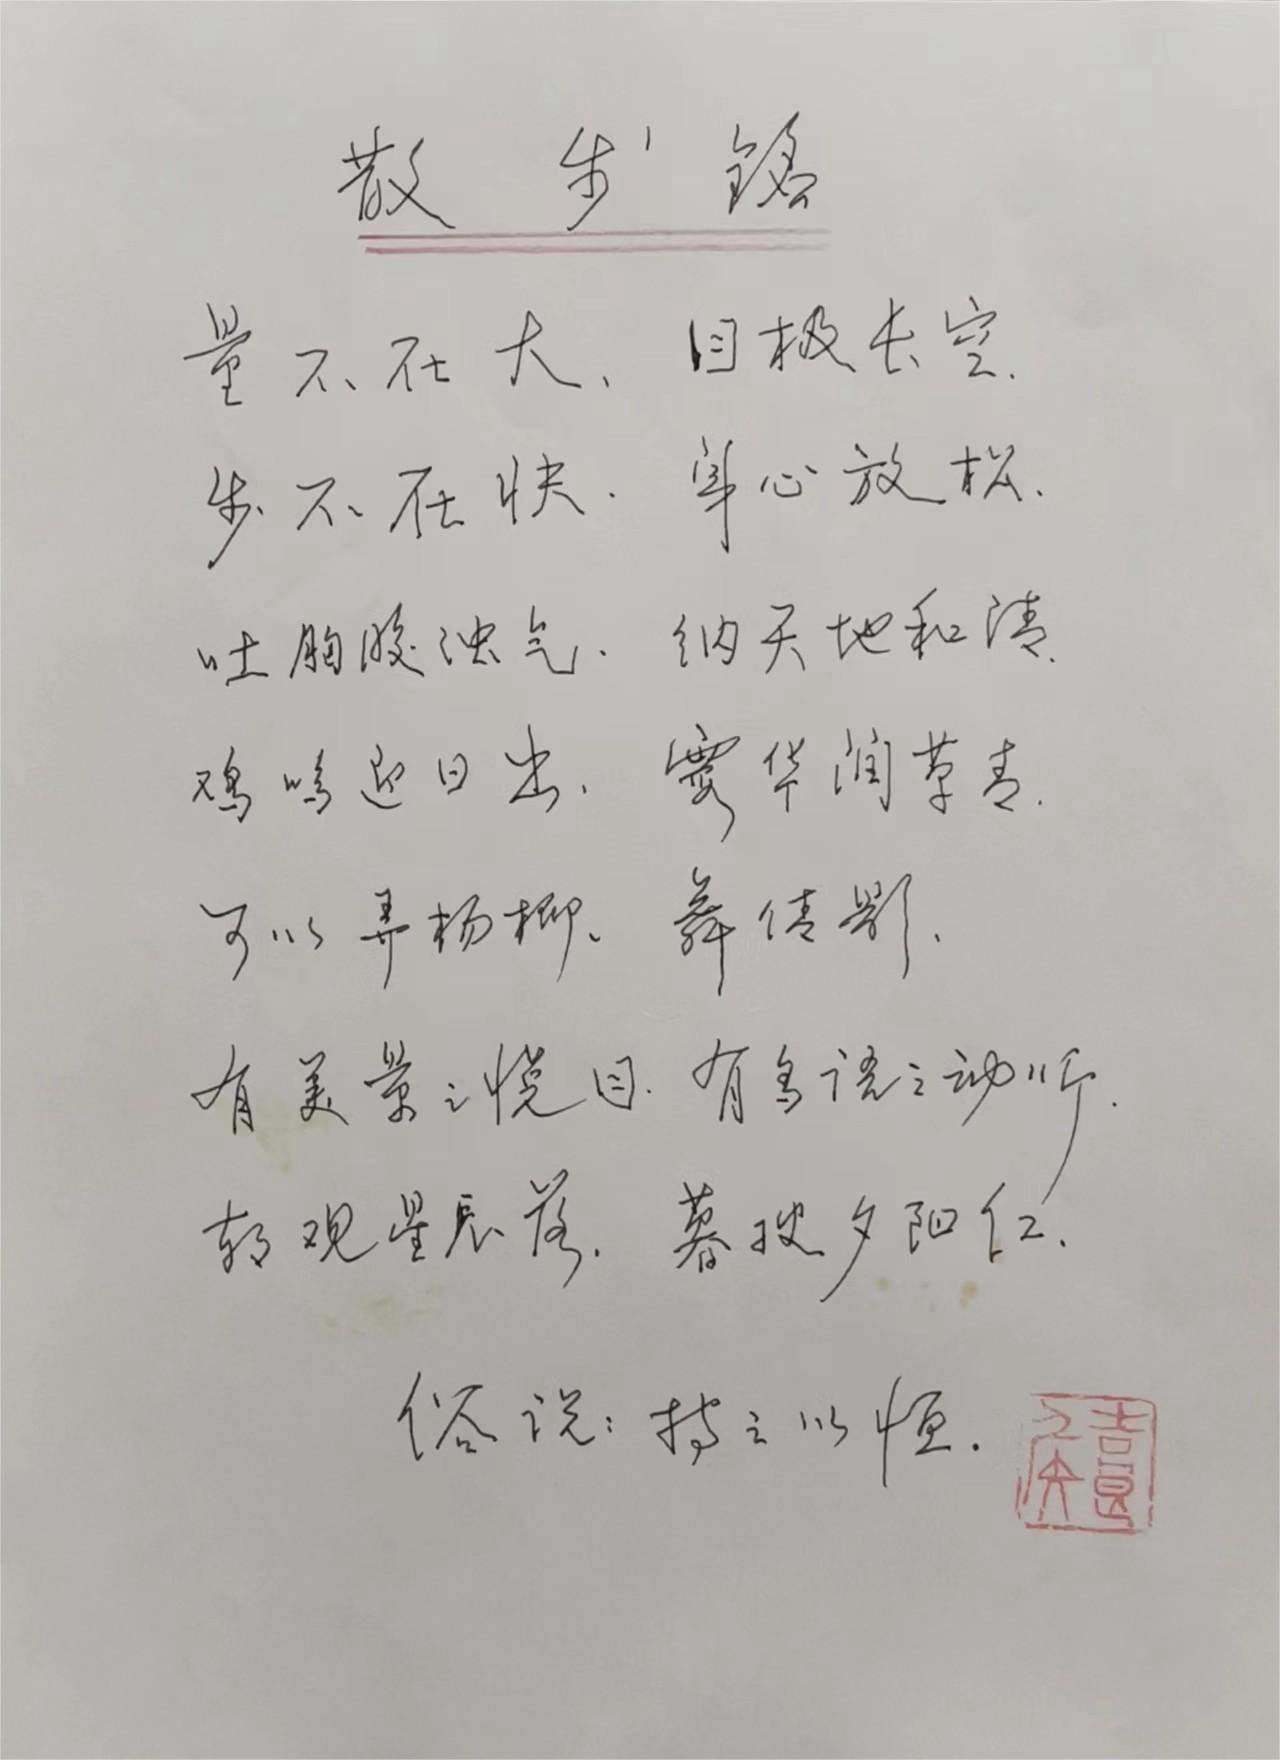 散步铭
量不在大、目极长空.
步不在快.身心放松.
吐胸腹浊气.纳天地和清.
鸡鸣迎日出.露华润草青.
可以弄杨柳、舞倩影.
有美景之悦目.有鸟语之动听.
朝观星辰落.暮揽夕阳红.
俗说:持之以恒.